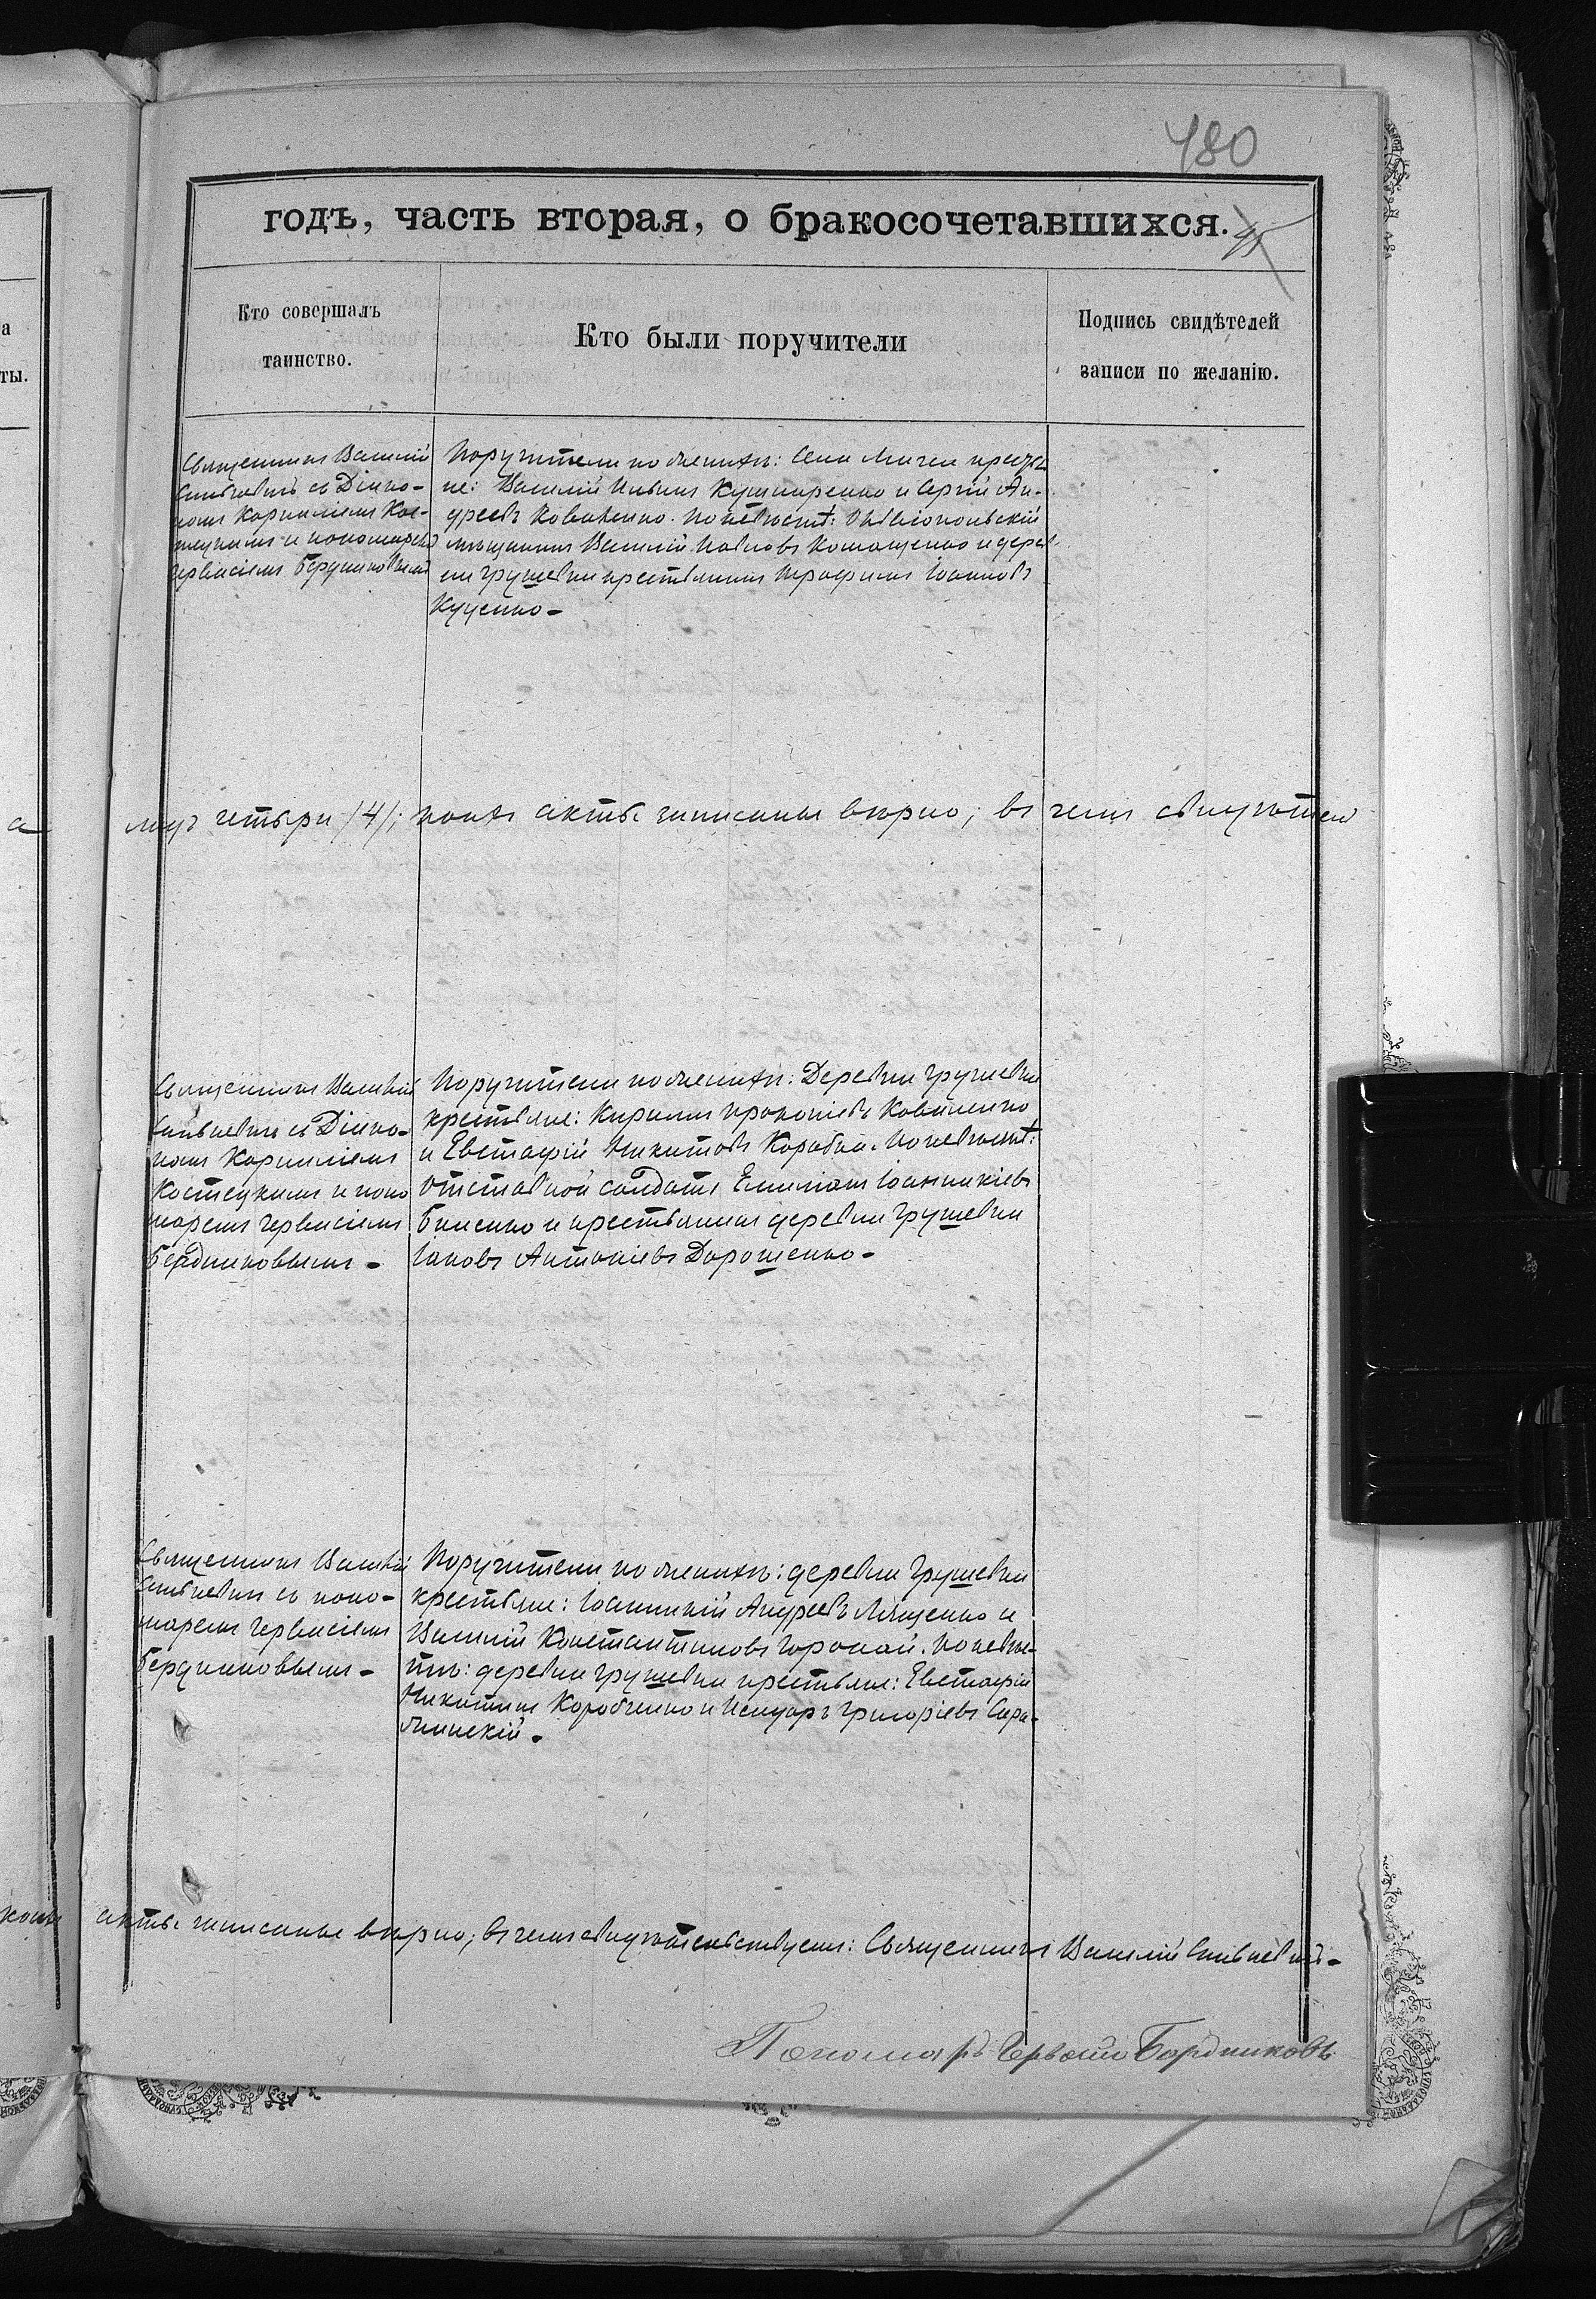 480
годъ, часть вторая, о бракосочетавшихся.
45
Кто совершалъ
таинство.
Кто были поручители
Подпись свидѣтелей
записи по желанію.
а
ты.
Священникъ Василій
съ Діако-
номъ Корниліемъ Кос-
тецкимъ и пономаремъ
Гервасіемъ Бердниковымъ
Поручители по женихѣ: Села Мигеи крестья
не: Василій Ильинъ Кушниренко и Сергій Ан-
дреевъ Коваленко. По невѣстѣ: Ольвіопольскій
мѣщанинъ Василій Павловъ Комащенко и дерев
ни Грушевки крестьянинъ Трофимъ Іоанновъ
Куценко-
а
четыри /4/; коихъ акты записаны вѣрно, въ чемъ свидѣтел
Священникъ Василій
съ Діако-
номъ Корниліемъ
Костецкимъ и поно
маремъ Гервасіемъ
Бердниковымъ-
Поручители по женихѣ: Деревни Грушевки
крестьяне: Кириллъ Прокопіевъ Коваленко
и Евстафій Никитовъ Коробка. По невѣстѣ:
Отставной солдатъ Емиліанъ Іоанникіевъ
Биленко и крестьянинъ деревни Грушевки
Іаковъ Антоніевъ Дорошенко-
Священникъ Василій
съ поно-
маремъ Гервасіемъ
Бердниковымъ-
Поручители по женихѣ: деревни Грушевки
крестьяне: Іоанникій Андреевъ Лященко и
Василій Константиновъ Горохай. По невѣс-
тѣ: деревни Грушевки крестьяне: Евстафій
Никитинъ Коробченко и Исидоръ Григоріевъ Сара-
жинскій.
коихъ акты записаны вѣрно, въ чемъ свидѣтельствуемъ: Священникъ Василій
Пономарь Гервасій Бердниковъ